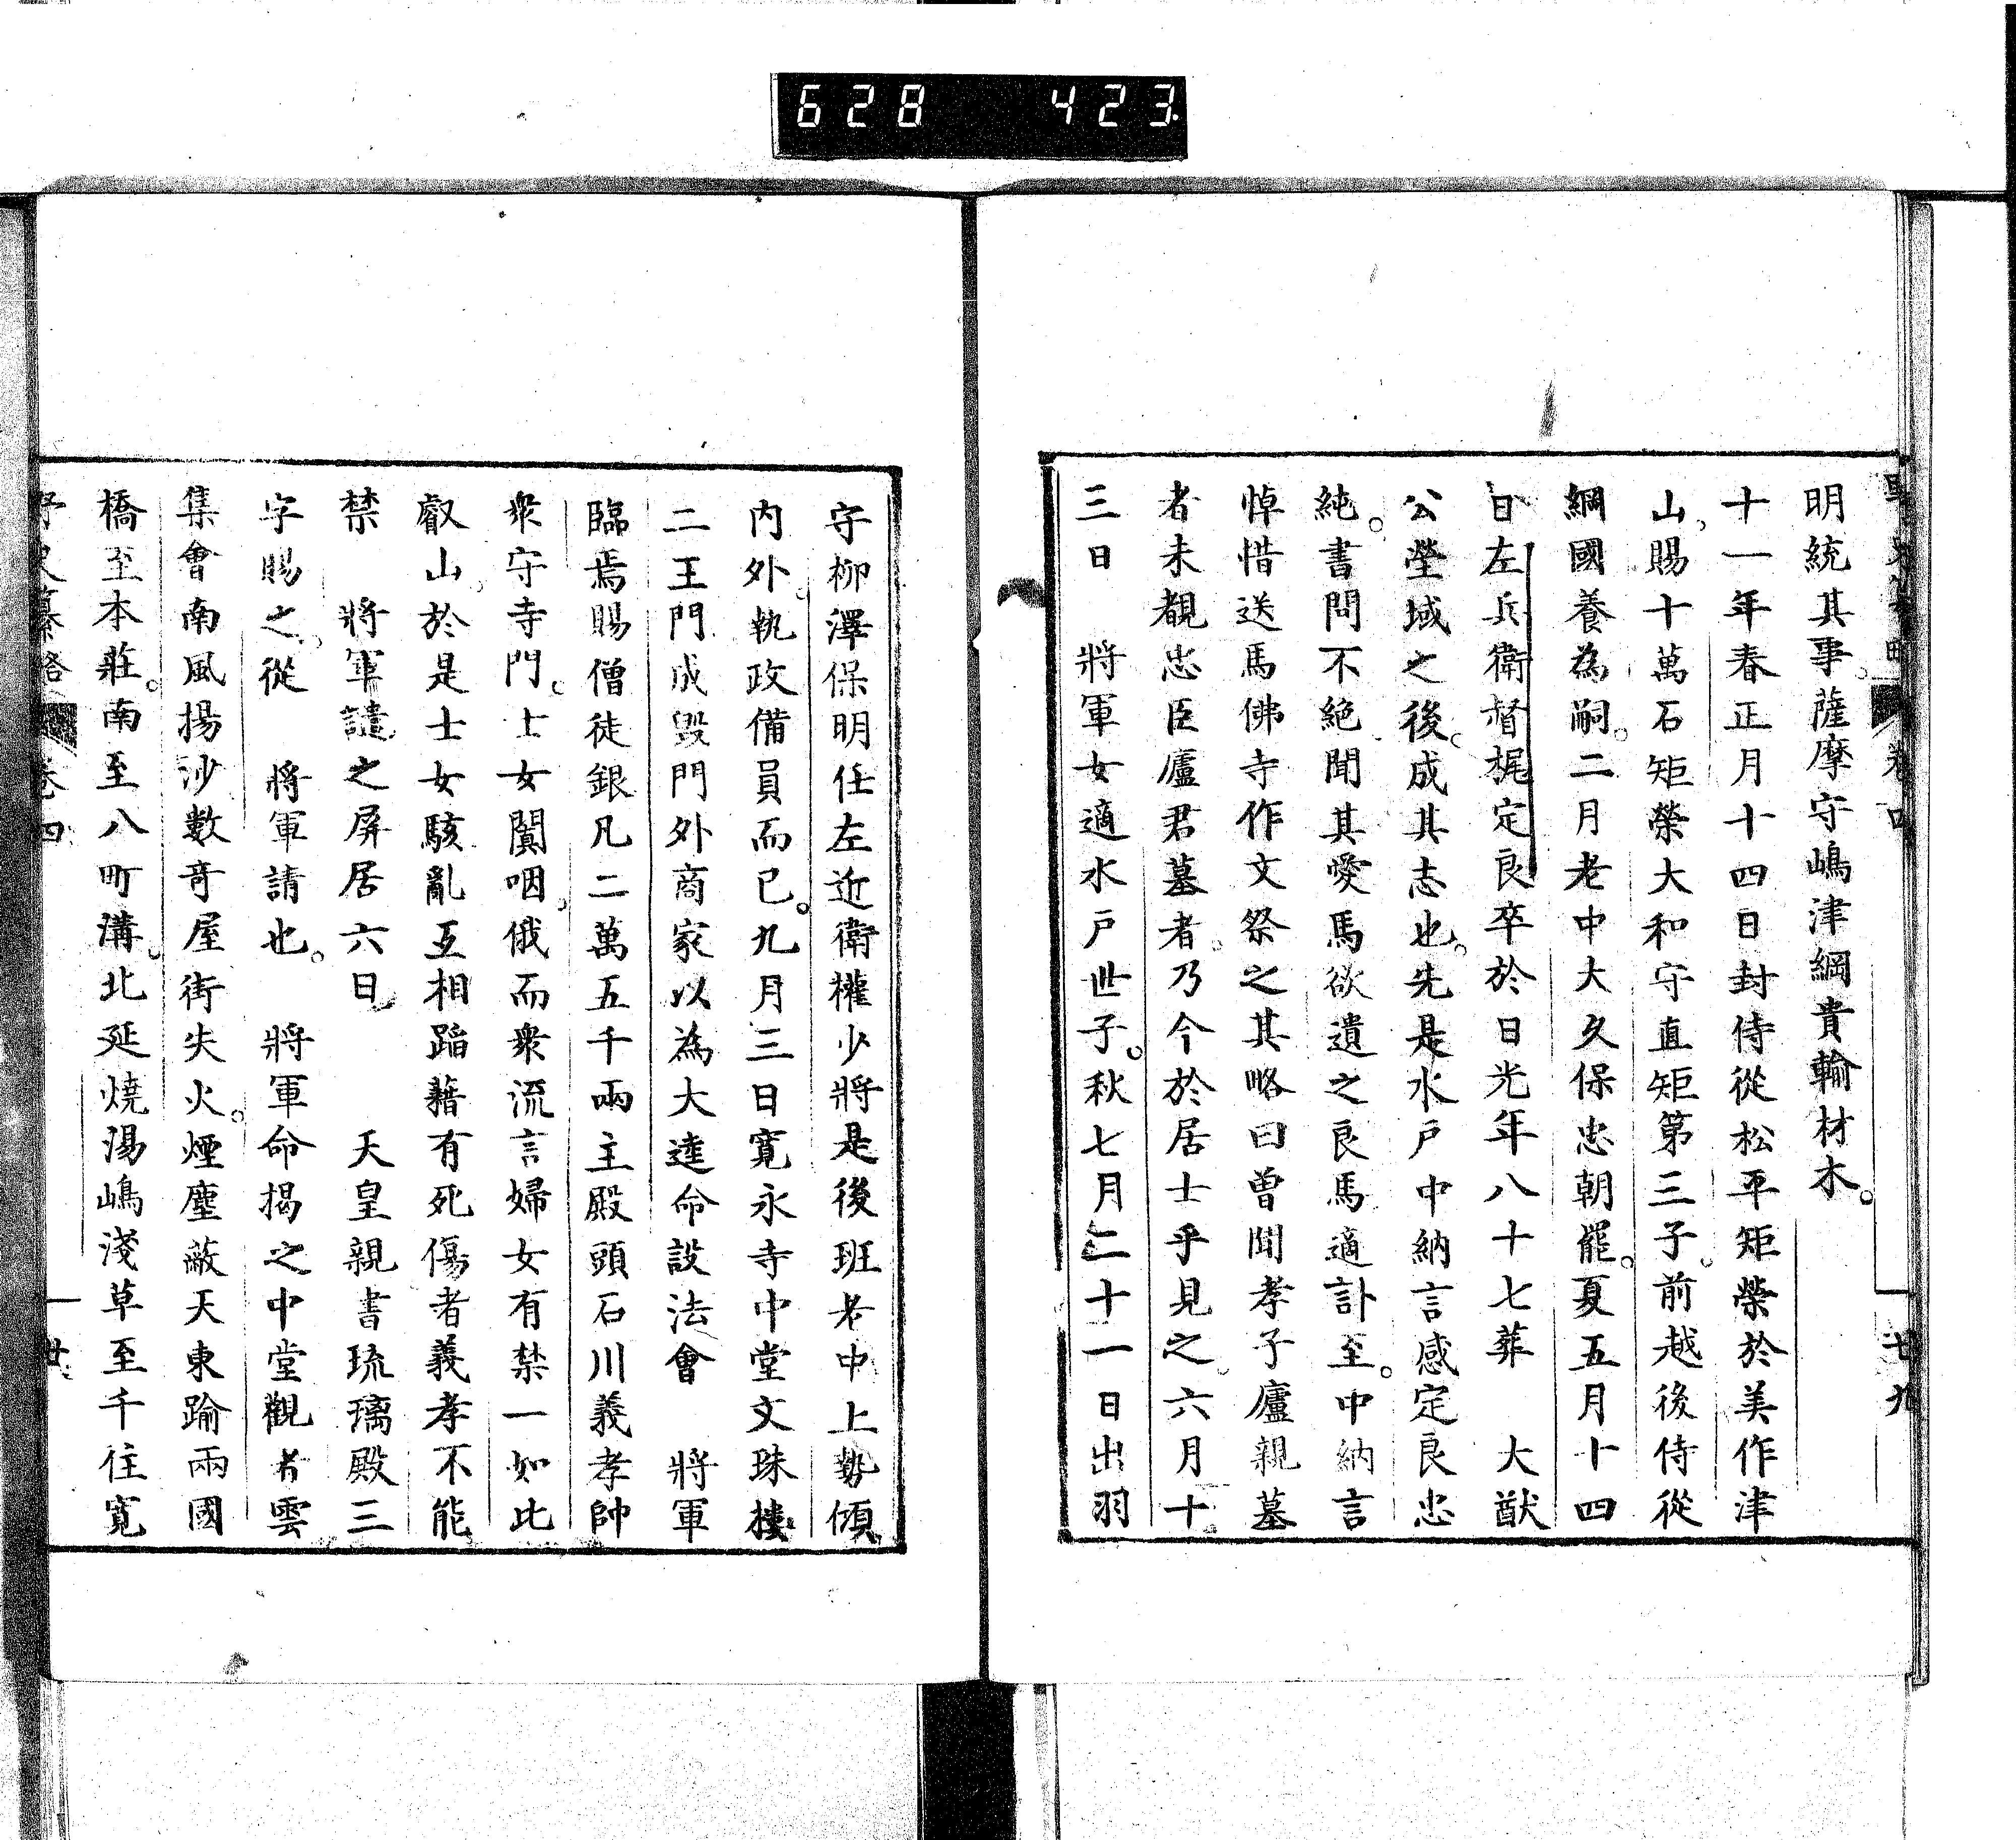 628 423
明統其事。薩摩守嶋津綱貴輸材木。
十一年春正月十四日封侍從松平矩榮於美作津
山。賜十萬石矩榮大和守直矩第三子。前越後侍從
綱國養為嗣。二月老中大久保忠朝罷。夏五月十四
日左兵衛督梶定良卒於日光年八十七葬 大猷
公塋域之後。成其志也。先是水戶中納言感定良忠
純。書問不絕聞其愛馬欲遺之良馬適訃至。中納言
悼惜送馬佛寺作文祭之其略曰曽聞孝子廬親墓
者未覩忠臣廬君墓者。乃今於居士乎見之。六月十
三日 將軍女適水戶世子。秋七月二十一日出羽
卷四 廿九
守柳澤保明任左近衛權少將是後班老中上勢傾
内外。執政備員而已。九月三日寛永寺中堂文珠樓
二王門成毀門外商家以為大逵命設法會 將軍
臨焉賜僧徒銀凡二萬五千兩主殿頭石川義孝帥
衆守寺門。士女闐咽。俄而衆流言婦女有禁一如比
叡山。於是士女駭亂互相蹈藉有死傷者義孝不能
禁 將軍譴之屏居六日 天皇親書琉璃殿三
字賜之。從 將軍請也。 將軍命揭之中堂觀者雲
集會南風揚沙數竒屋街失火。煙塵蔽天東踰兩國
橋至本莊。南至八町溝。北延燒湯嶋淺草至千住寛
野史纂略 卷四 卅